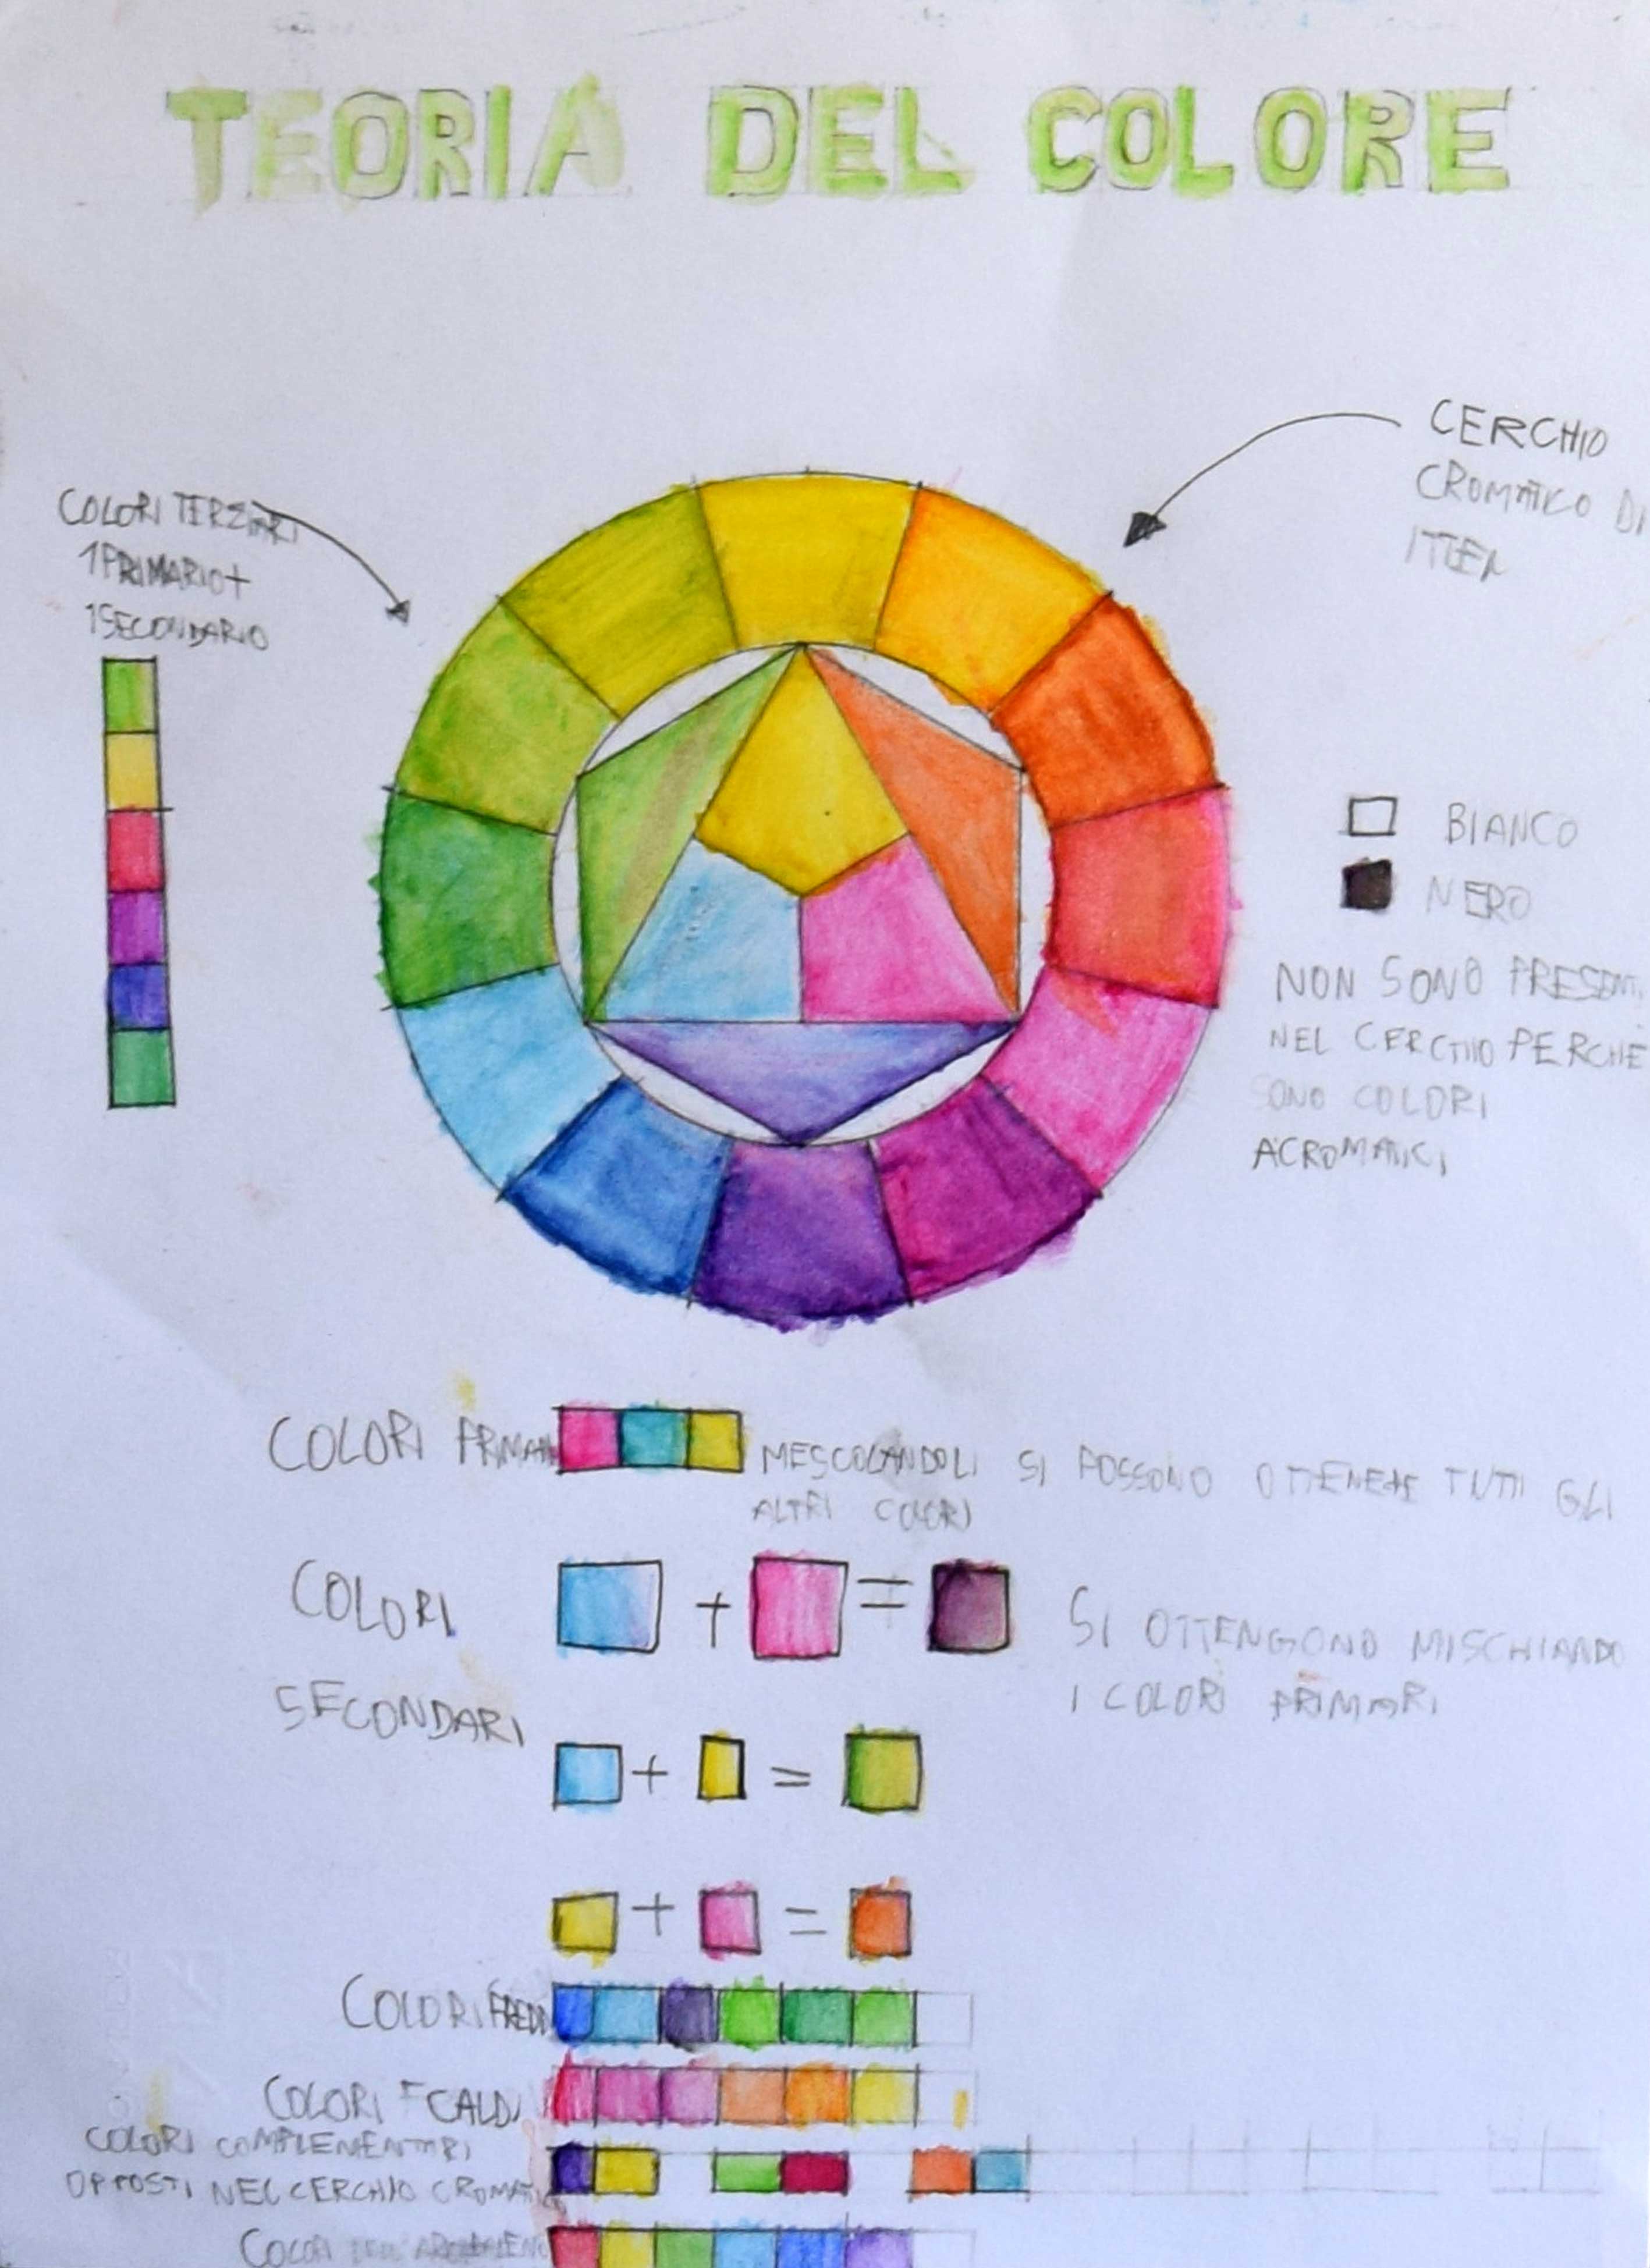 TEORIA DEL COLORE
CERCHIO
CROMATICO DI
ITTEN
COLORI TERZIARI
1 PRIMARIO +
1 SECONDARIO
BIANCO
NERO
NON SONO PRESENTI
NEL CERCHIO PERCHÈ
SONO COLORI
ACROMATICI
COLORI PRIMARI
MESCOLANDOLI SI POSSONO OTTENERE TUTTI GLI
ALTRI COLORI
COLORI
SECONDARI
+ =
SI OTTENGONO MISCHIANDO
I COLORI PRIMARI
+ =
+ =
COLORI FREDDI
COLORI CALDI
COLORI COMPLEMENTARI
OPPOSTI NEL CERCHIO CROMATICO
COLORI DELL'ARCOBALENO